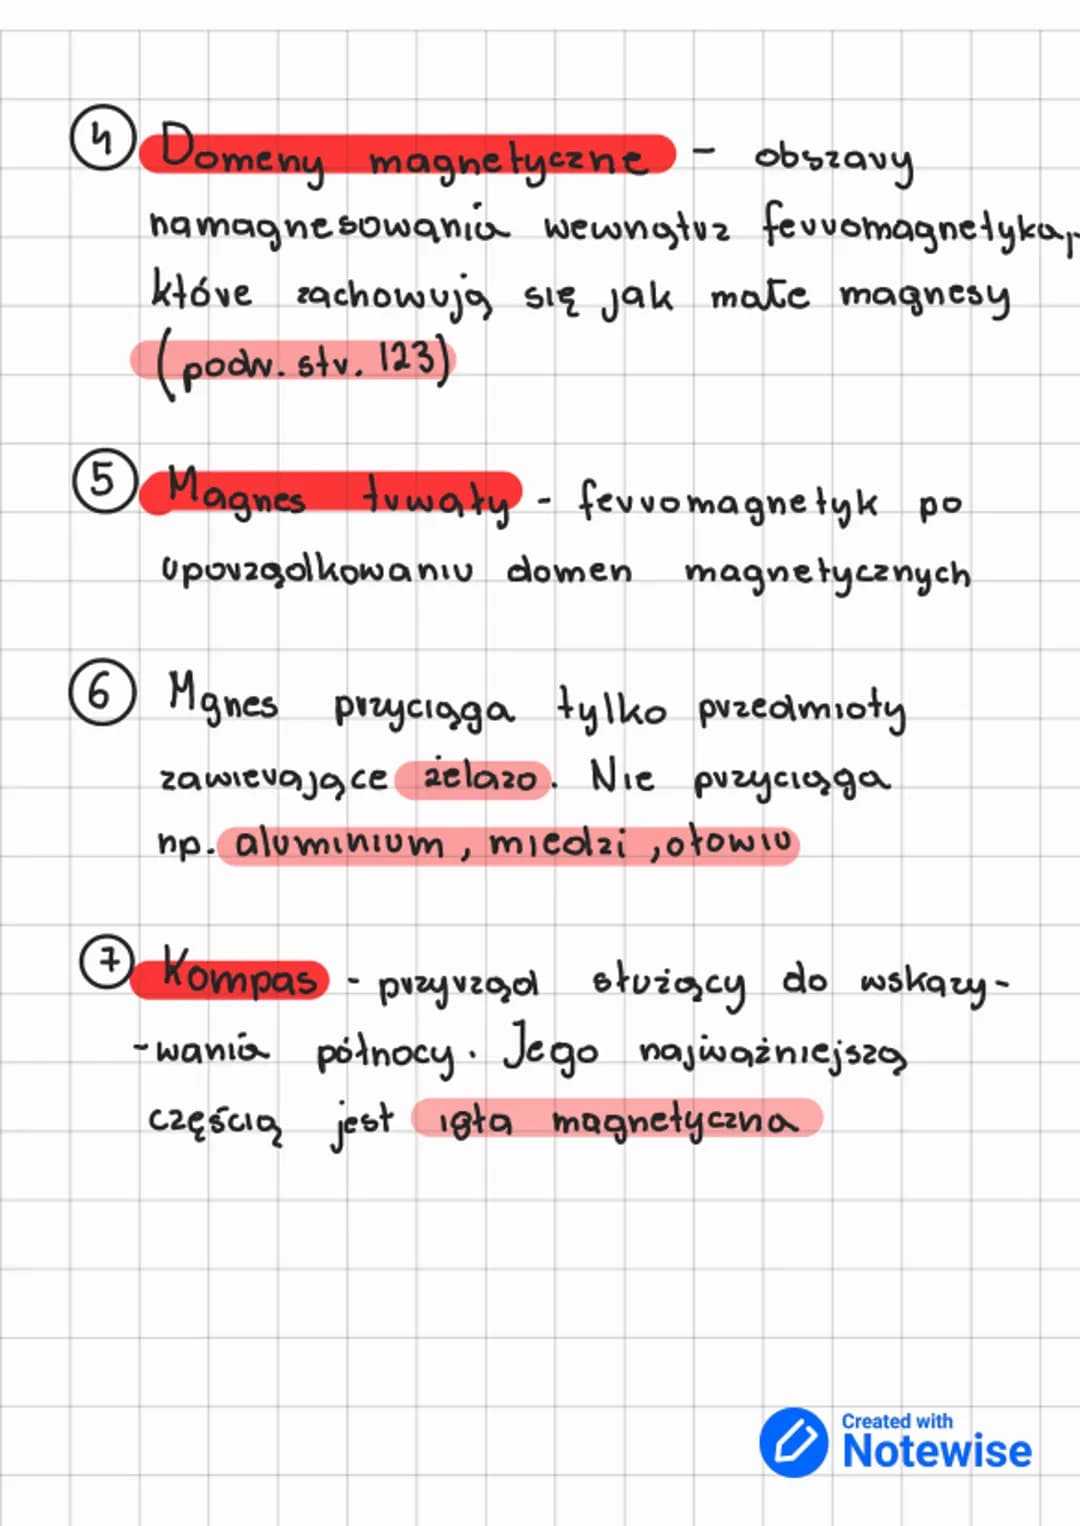 4 Domeny magnetyczne - obszary
namagnesowania wewnątrz ferromagnetyka,
które zachowują się jak małe magnesy
(podr. str. 123)
5 Magnes trwały - ferromagnetyk po
uporządkowaniu domen magnetycznych
6 Mgnes przyciąga tylko przedmioty
zawierające żelazo. Nie przyciąga
np. aluminium, miedzi, ołowiu
7 Kompas - przyrząd służący do wskazy-
-wania północy. Jego najważniejszą
częścią jest igła magnetyczna
Created with
Notewise